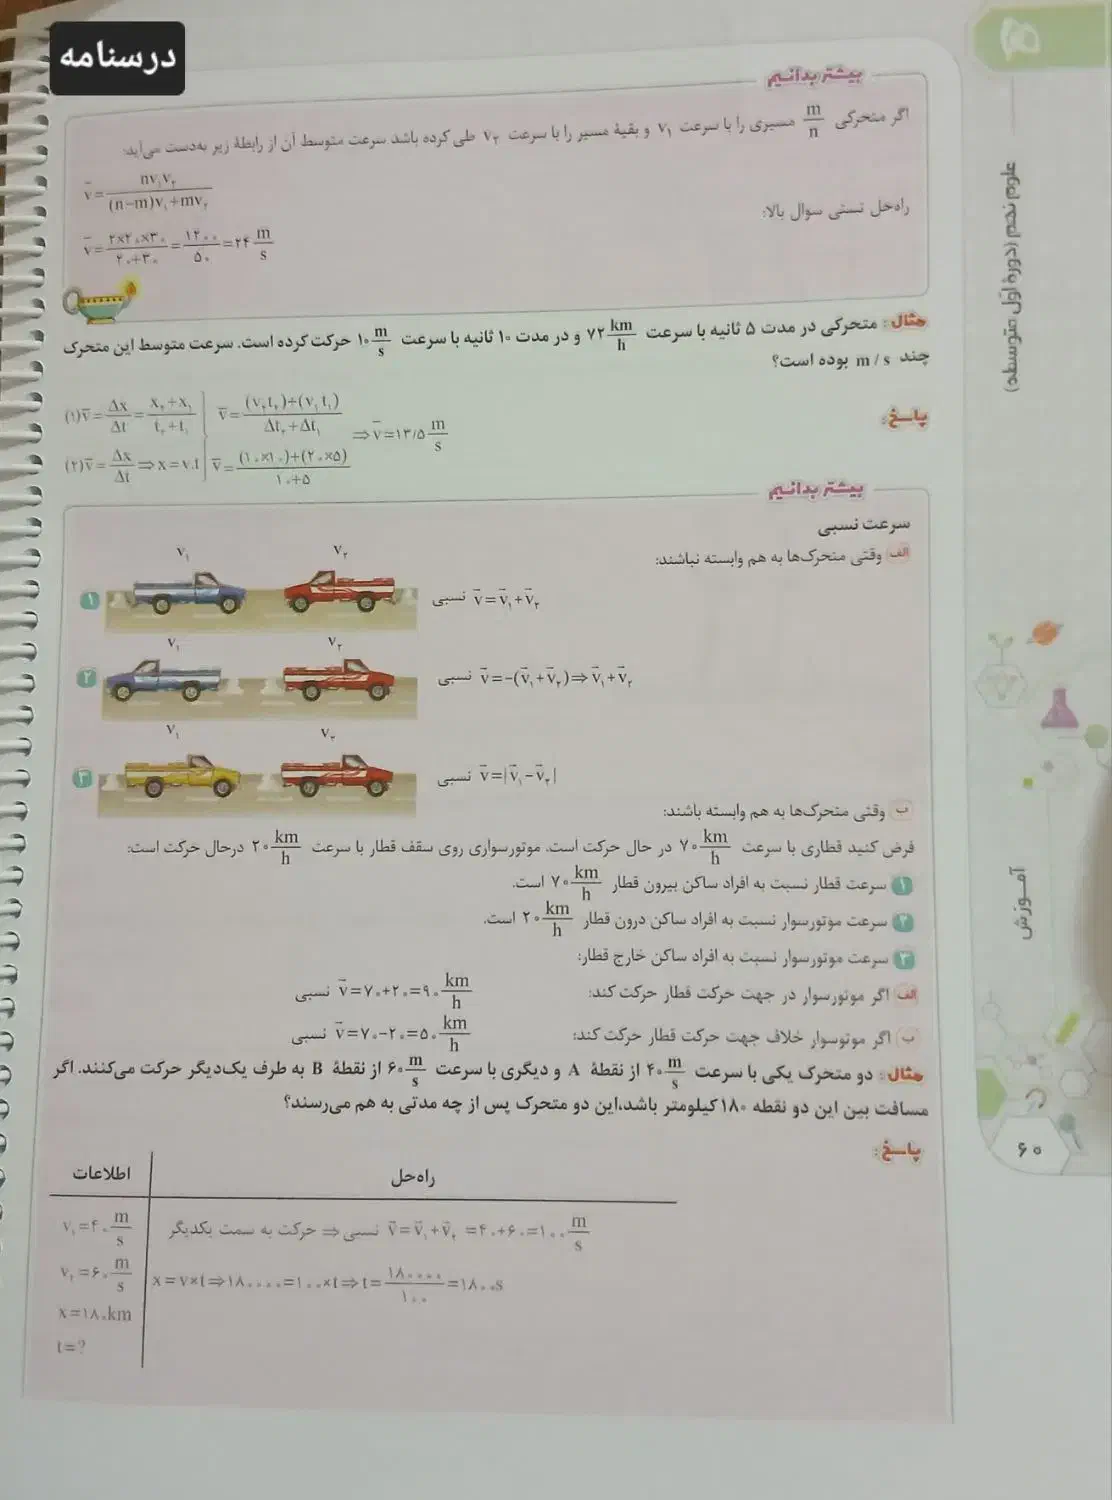 درسنامه
بیشتر بدانیم
اگر متحرکی m/n مسیری را با سرعت v₁ و بقیهٔ مسیر را با سرعت v₂ طی کرده باشد سرعت متوسط آن از رابطهٔ زیر به‌دست می‌آید:
v̄ = nv₁v₂ / (n−m)v₁+mv₂
راه‌حل تستی سوال بالا:
v̄ = ۲×۲۰×۳۰ / ۲۰+۳۰ = ۱۲۰۰ / ۵۰ = ۲۴ m/s
مثال: متحرکی در مدت ۵ ثانیه با سرعت ۷۲ km/h و در مدت ۱۰ ثانیه با سرعت ۱۰ m/s حرکت کرده است. سرعت متوسط این متحرک
چند m/s بوده است؟
پاسخ:
(۱) v̄ = Δx/Δt = x₂+x₁ / t₂+t₁
v̄ = (v₂t₂)+(v₁t₁) / Δt₂+Δt₁
⇒ v̄ = ۱۳/۵ m/s
(۲) v̄ = Δx/Δt ⇒ x = v.t
v̄ = (۱۰×۱۰)+(۲۰×۵) / ۱۰+۵
بیشتر بدانیم
سرعت نسبی
الف وقتی متحرک‌ها به هم وابسته نباشند:
v₁ v₂
۱ نسبی v̄ = v̄₁+v̄₂
v₁ v₂
۲ نسبی v̄ = −(v̄₁+v̄₂) ⇒ v̄₁+v̄₂
v₁ v₂
۳ نسبی v̄ = |v̄₁−v̄₂|
ب وقتی متحرک‌ها به هم وابسته باشند:
فرض کنید قطاری با سرعت ۷۰ km/h در حال حرکت است. موتورسواری روی سقف قطار با سرعت ۲۰ km/h درحال حرکت است:
۱ سرعت قطار نسبت به افراد ساکن بیرون قطار ۷۰ km/h است.
۲ سرعت موتورسوار نسبت به افراد ساکن درون قطار ۲۰ km/h است.
۳ سرعت موتورسوار نسبت به افراد ساکن خارج قطار:
الف اگر موتورسوار در جهت حرکت قطار حرکت کند: نسبی v̄ = ۷۰+۲۰ = ۹۰ km/h
ب اگر موتوسوار خلاف جهت حرکت قطار حرکت کند: نسبی v̄ = ۷۰−۲۰ = ۵۰ km/h
مثال: دو متحرک یکی با سرعت ۴۰ m/s از نقطهٔ A و دیگری با سرعت ۶۰ m/s از نقطهٔ B به طرف یک‌دیگر حرکت می‌کنند. اگر
مسافت بین این دو نقطه ۱۸۰ کیلومتر باشد،این دو متحرک پس از چه مدتی به هم می‌رسند؟
پاسخ:
راه‌حل
حرکت به سمت یکدیگر ⇒ نسبی v̄ = v̄₁+v̄₂ = ۴۰+۶۰ = ۱۰۰ m/s
x = v×t ⇒ ۱۸۰۰۰۰ = ۱۰۰×t ⇒ t = ۱۸۰۰۰۰ / ۱۰۰ = ۱۸۰۰s
اطلاعات
v₁ = ۴۰ m/s
v₂ = ۶۰ m/s
x = ۱۸۰km
t = ?
علوم نهم (دورهٔ اول متوسطه)
آمـوزش
۶۰